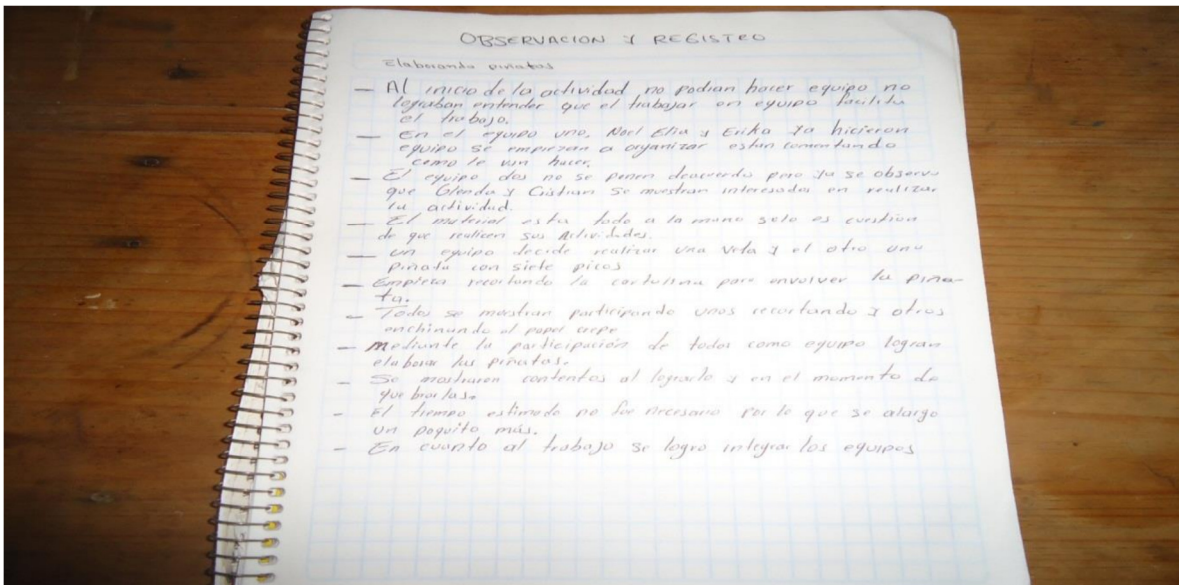 OBSERVACION Y REGISTRO
Elaborando piñatas
— Al inicio de la actividad no podian hacer equipo no
lograban entender que el trabajar en equipo facilita
el trabajo.
— En el equipo uno, Noel Elia y Erika ya hicieron
equipo se empiezan a organizar estan comentando
como le van hacer.
— El equipo dos no se ponen deacuerdo pero ya se observa
que Glenda y Cristian se muestran interesados en realizar
la actividad.
— El material esta todo a la mano solo es cuestion
de que realicen sus actividades.
— un equipo decide realizar una vela y el otro una
piñata con siete picos
— Empieza recortando la cartulina para envolver la piña-
ta.
— Todos se muestran participando unos recortando y otros
enchinando el papel crepe
— mediante la participación de todos como equipo logran
elaborar las piñatas.
— Se mostraron contentos al lograrlo y en el momento de
quebrarlas.
- El tiempo estimado no fue necesario por lo que se alargo
un poquito más.
- En cuanto al trabajo se logro integrar los equipos